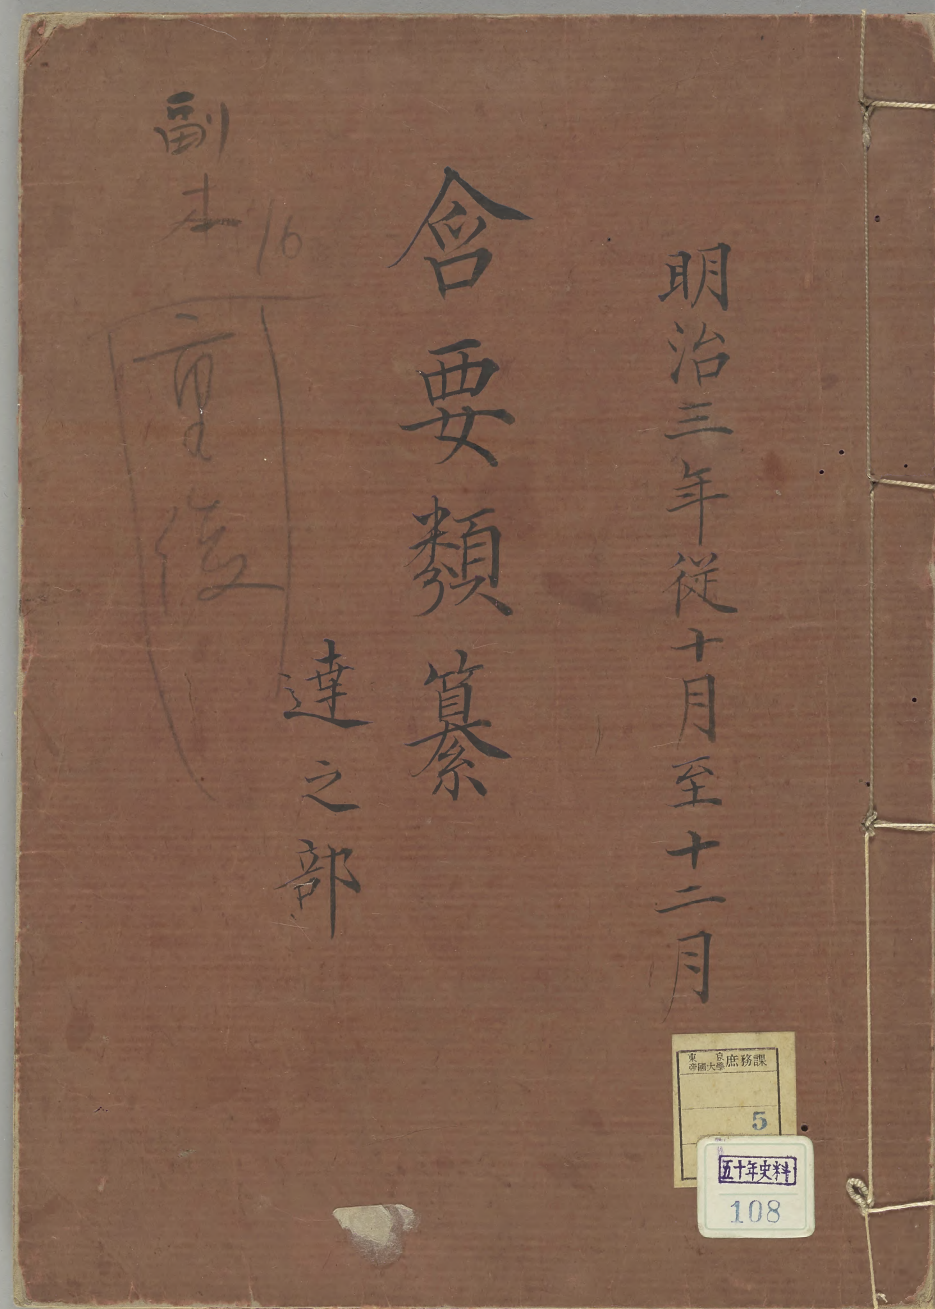 明治三年従十月至十二月
含要類纂
達之部
副本
16
東京帝國大學庶務課
5
五十年史料
108